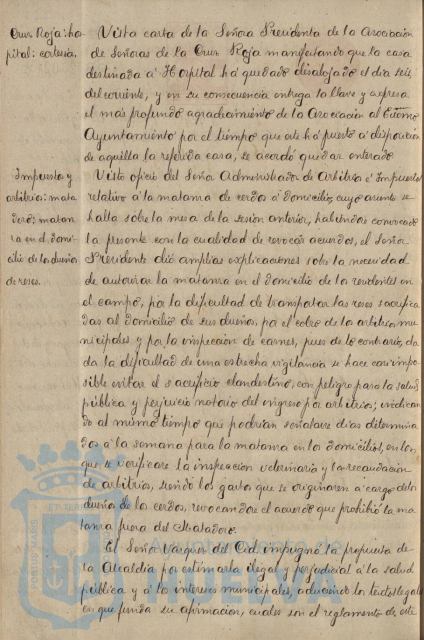 Cruz Roja: hos-
pital: cortesia.
Vista carta de la Señora Presidenta de la Asociación
de Señoras de la Cruz Roja manifestando que la casa
destinada á Hospital há quedado desalojada el dia seis
del corriente, y en su consecuencia entrega la llave y expresa
el mas profundo agradecimiento de la Asociación al Exmo
Ayuntamiento por el tiempo que este há puesto á disposicion
de aquella la referida casa, se acordó quedar enterado
Impuestos y
arbitrios: mata
dero: matan
za en el domi-
cilio de los dueños
de reses.
Visto oficio del Señor Administrador de Arbitrios é Impuestos
relativo á la matanza de cerdos á domicilio, cuyo asunto se
halla sobre la mesa de la sesion anterior, habiendose convocado
la presente con la cualidad de revocar acuerdos, el Señor
Presidente dió amplias explicaciones sobre la necesidad
de autorizar la matanza en el domicilio de los residentes en
el campo, por la dificultad de transportar las reses sacrifica
das al domicilio de sus dueños, por el cobro de los arbitrios mu
nicipales y por la inspeccion de carnes, pues de lo contrario, da
da la dificultad de una estrecha vigilancia se hace casi impo
sible evitar el sacrificio clandestino, con peligro para la salud
pública y perjuicio notorio del ingreso por arbitrios; indican
do al mismo tiempo que podrian señalarse dias determina
dos á la semana para la matanza en los domicilios, en los
que se verificare la inspeccion veterinaria y la recaudacion
de arbitrios, siendo los gastos que se originaren á cargo de los
dueños de los cerdos, revocandose el acuerdo que prohibió la ma
tanza fuera del Matadero.
El Señor Vazquez del Cid, impugnó la propuesta de
la Alcaldia por estimarla ilegal y perjudicial á la salud
pública y á los intereses municipales, aduciendo los textos legales
en que funda su afirmacion, cuales son el reglamento de este
PORTUS MARIS ET TERRAE
Ayuntamiento de
HUELVA